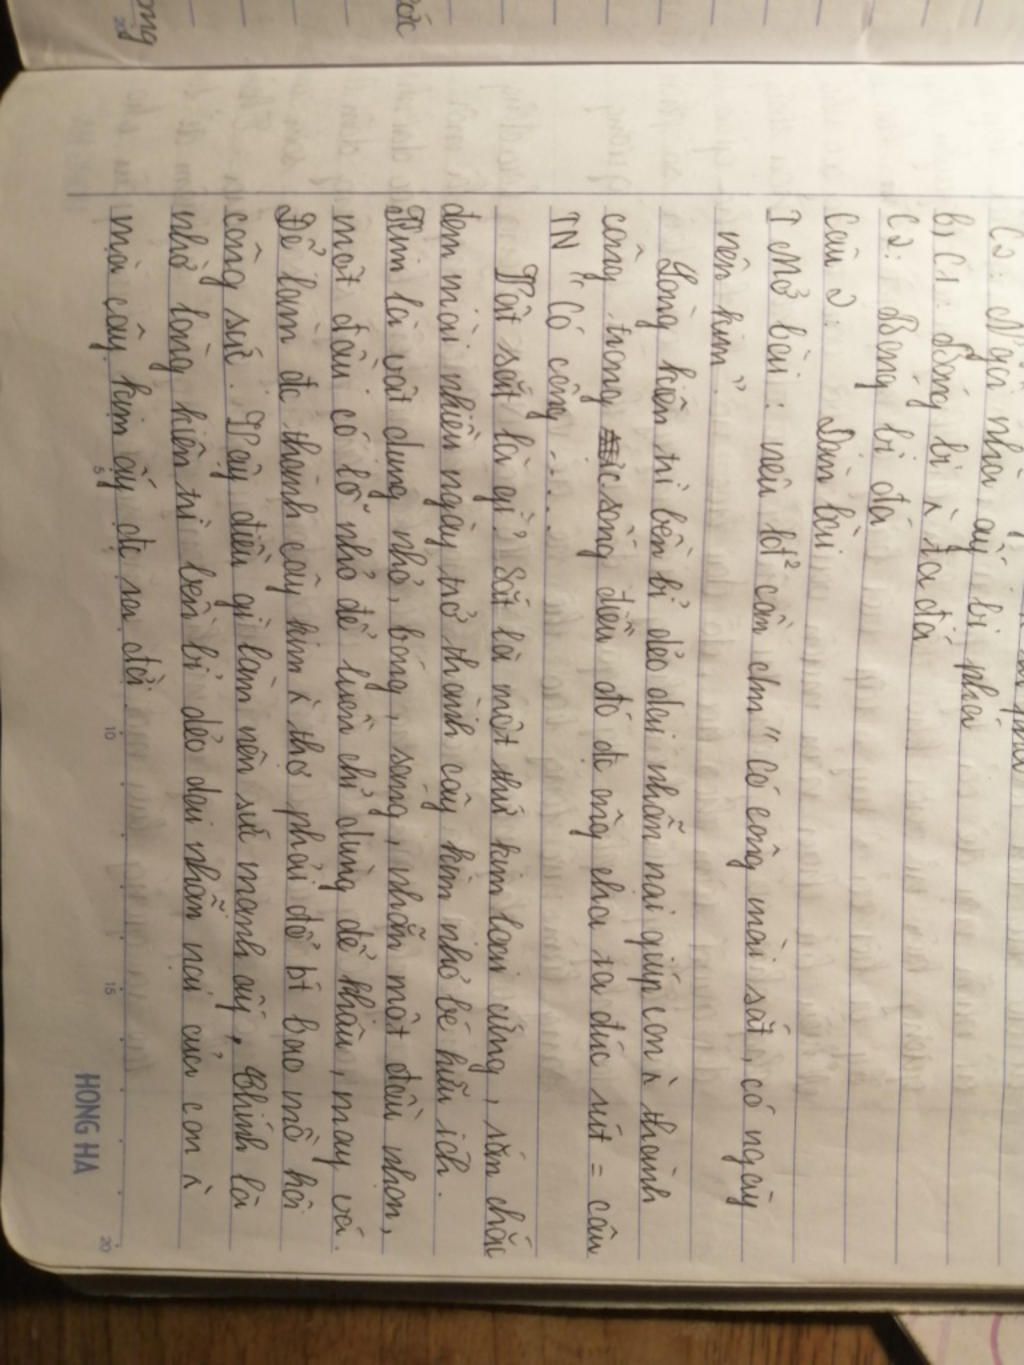 ước
C2: Ngôi nhà ấy bị phá
B) C1: Bóng bị λ ta đá
C2: Bóng bị đá
Câu 2: Dàn bài
I Mở bài: nêu lđ² cần cm "Có công mài sắt, có ngày
nên kim"
Lòng kiên trì bền bỉ dẻo dai nhẫn nại giúp con λ thành
công trong c sống điều đó đc ông cha ta đúc rút = câu
TN "Có công ....
Vậy sắt là gì? Sắt là một thứ kim loại cứng, rắn chắc
đem mài nhiều ngày trở thành cây kim nhỏ bé hữu ích.
Kim là vật dụng nhỏ, bóng, sáng, nhẵn một đầu nhọn,
một đầu có lỗ nhỏ để luồn chỉ dùng để khâu, may vá.
Để làm đc thành cây kim λ thợ phải đổ bt bao mồ hôi
công sức. Vậy điều gì làm nên sức mạnh ấy, Chính là
nhờ lòng kiên trì bền bỉ dẻo dai nhẫn nại của con λ
mà cây kim ấy đc ra đời
5 10 15 20
HONG HA